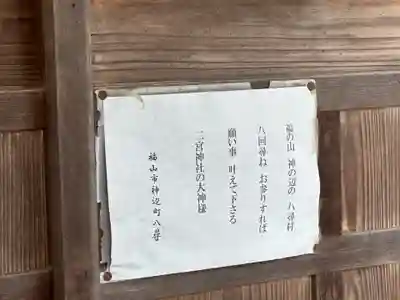 福の山 神の辺の 八尋村
八回尋ね お参りすれば
願い事 叶えて下さる
二宮神社の大神様
福山市神辺町八尋